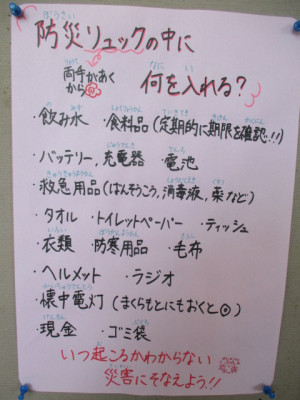 防災リュックの中に
両手があくから
何を入れる？
・飲み水 ・食料品(定期的に期限を確認!!)
・バッテリー,充電器 ・電池
・救急用品(ばんそうこう,消毒液,薬など)
・タオル ・トイレットペーパー ・ティッシュ
・衣類 ・防寒用品 ・毛布
・ヘルメット ・ラジオ
・懐中電灯(まくらもとにもおくと◎)
・現金 ・ゴミ袋
いつ起こるかわからない
災害にそなえよう!!